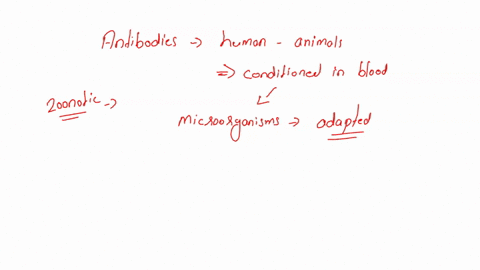 Antibodies → human - animals
⇒ conditioned in blood
zoonotic →
microorganisms → adapted